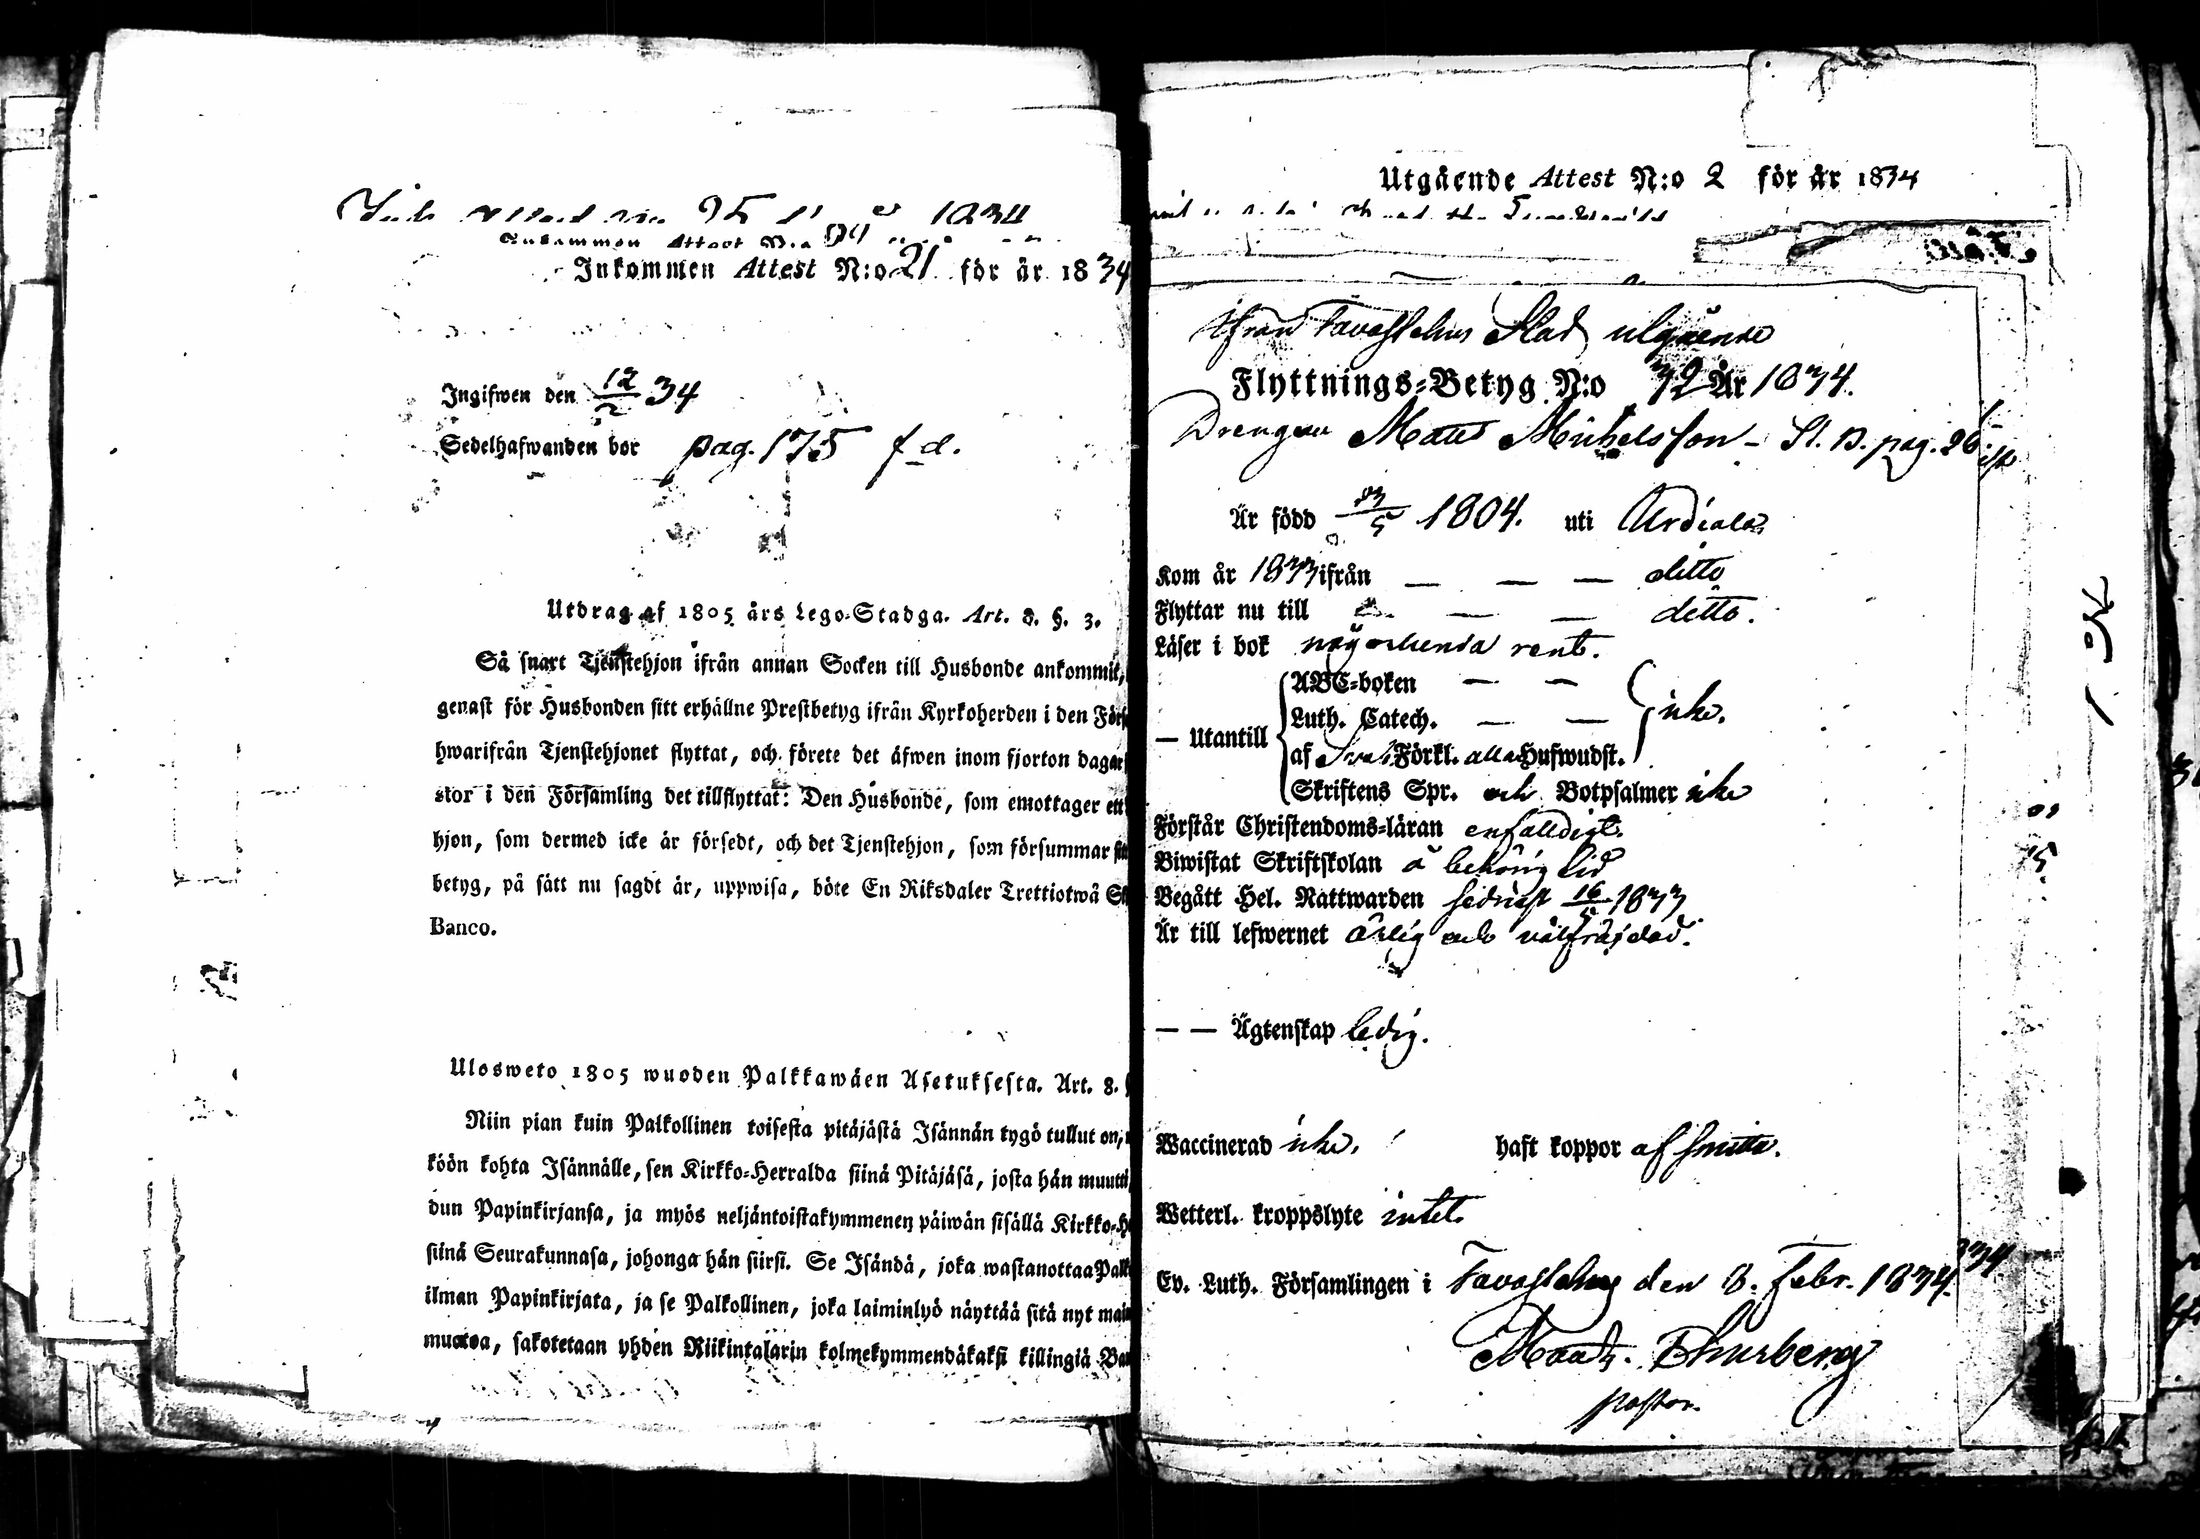 Inkommen Attest N:o 21 för år 1834
Ingifwen den 12/2 34
Sedelhafwanden bor pag. 175 f d.
Utdrag af 1805 års Lego-Stadga. Art. 8. §. 3.
Så snart Tjenstehjon ifrån annan Socken till Husbonde ankommit,
genast för Husbonden sitt erhållne Prestbetyg ifrån Kyrkoherden i den
hwarifrån Tjenstehjonet flyttat, och förete det äfwen inom fjorton dagar
stor i den Församling det tillflyttat: Den Husbonde, som emottager ett
hjon, som dermed icke är försedt, och det Tjenstehjon, som försummar
betyg, på sätt nu sagdt är, uppwisa, böte En Riksdaler Trettiotwå
Banco.
Ulosweto 1805 wuoden Palkkawäen Asetuksesta. Art. 8.
Niin pian kuin Palkollinen toisesta pitäjästä Isännän tygö tullut on,
köön kohta Isännälle, sen Kirkko-Herralda siinä Pitäjäsä, josta hän muutti
dun Papinkirjansa, ja myös neljäntoistakymmenen päiwän sisällä
siinä Seurakunnasa, johonga hän siirsi. Se Isändä, joka wastanottaa
ilman Papinkirjata, ja se Palkollinen, joka laiminlyö näyttää sitä nyt
muotoa, sakotetaan yhden Riikintalarin kolmekymmendäkaksi killingiä
Utgående Attest N:o 2 för år 1834
Ifrån Tavastehus Stad utgående
Flyttnings-Betyg N:o 32 År 1834.
Drengen Matts Michelsson - St. B. pag. 26
Är född 23/5 1804. uti Urdiala
Kom år 1833 ifrån — — — ditto
Flyttar nu till — — ditto.
Läser i bok någorlunda rent.
ABC-boken — —
Luth. Catech. — — icke.
— Utantill
af Förkl. alla Hufwudst.
Skriftens Spr. och Botpsalmer icke
Förstår Christendoms-läran enfalldigt.
Biwistat Skriftskolan å behörig tid
Begått Hel. Nattwarden sednast 16/5 1833
Är till lefwernet ärlig och välfräjdad.
— — Ägtenskap ledig.
Waccinerad icke. haft koppor af smitta.
Wetterl. kroppslyte intet.
Ev. Luth. Församlingen i Tavastehus den 8. Febr. 1834.
Thurberg
pastor.